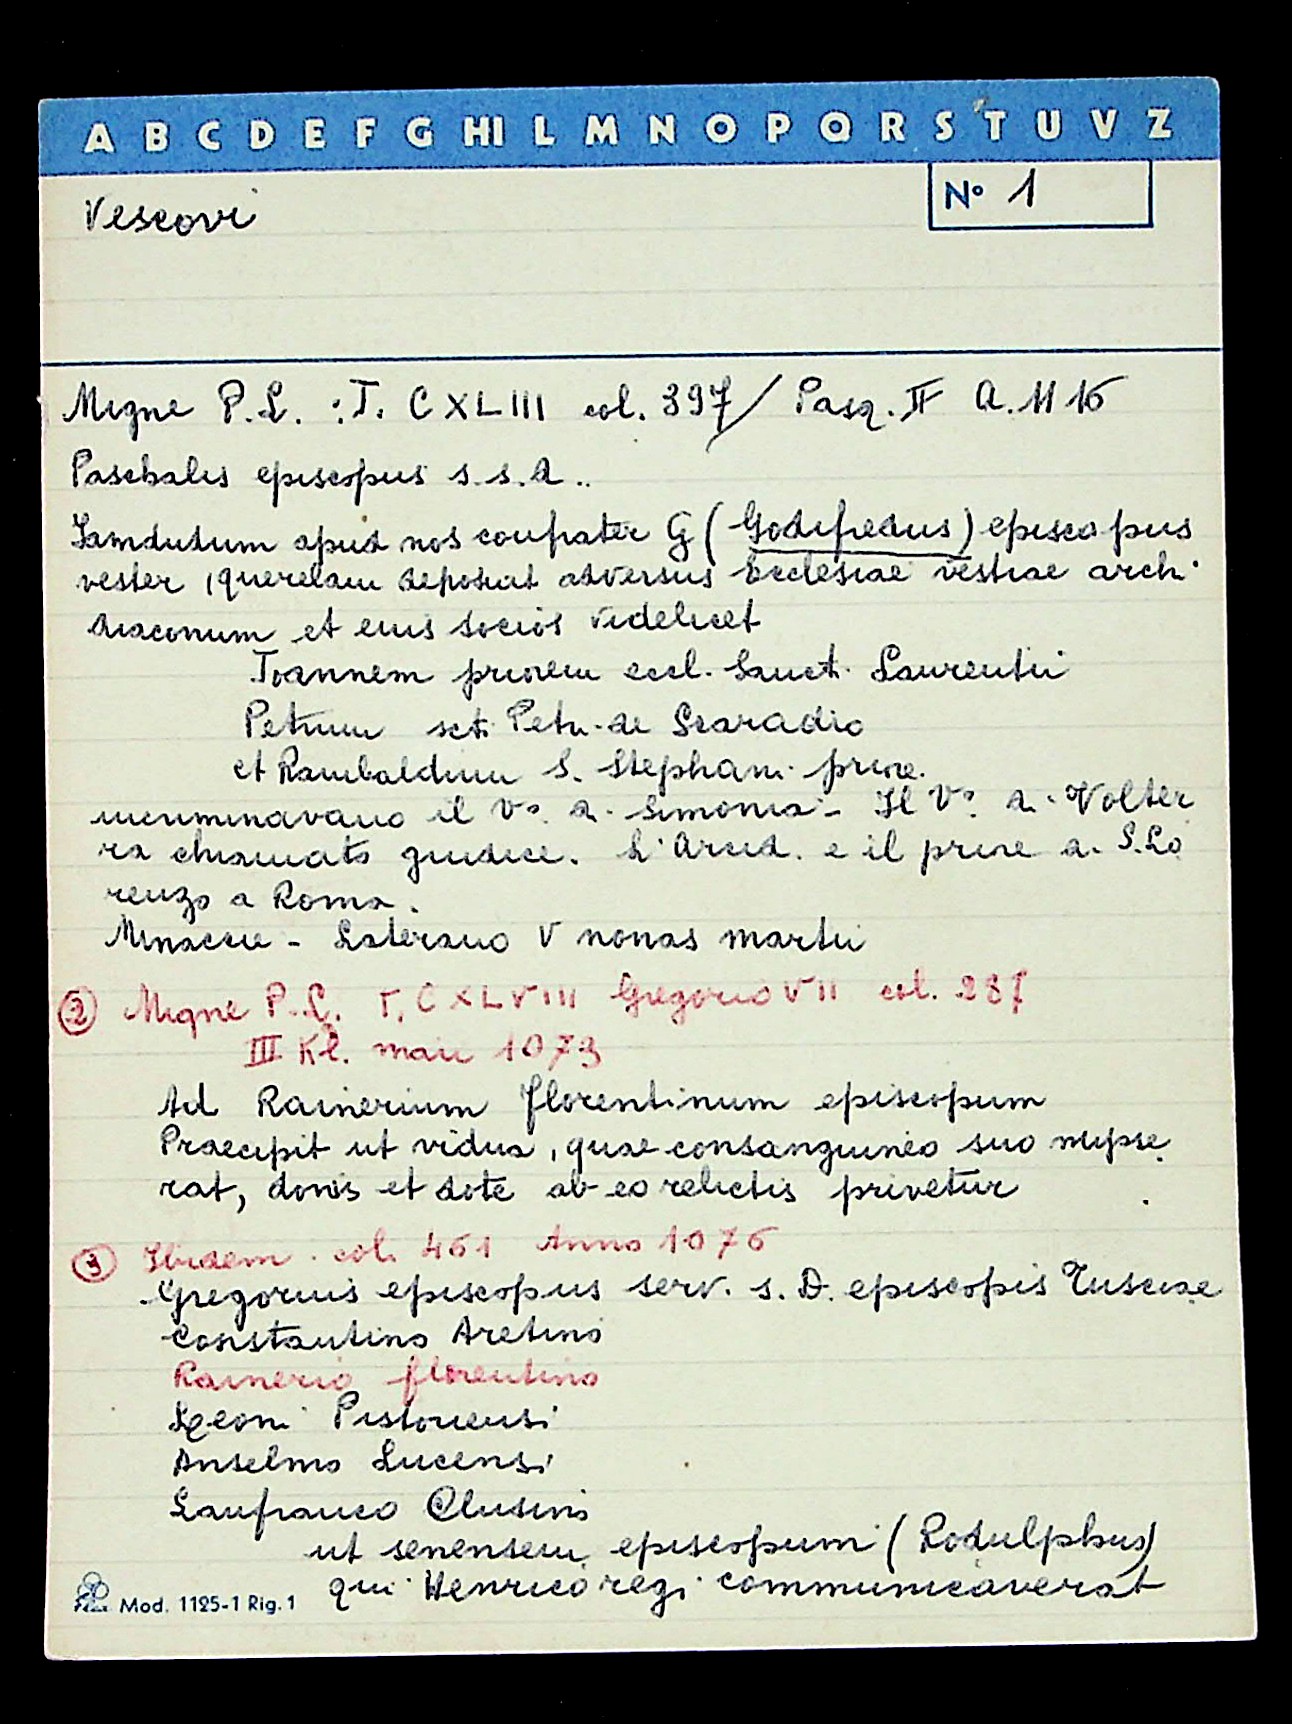 A B C D E F G HI L M N O P Q R S T U V Z
Vescovi
Nº 1
Migne P.L. : T. CXLIII col. 397 / Pasq. II A. 1116
Paschalis episcopus s.s.d..
Iamdudum apud nos confrater G (Godifredus) episcopus
vester, querelam deposuit adversus Ecclesiae vestrae archi
diaconum et eius socios videlicet
Ioannem priorem eccl. Sanct. Laurentii
Petrum scti Petri de Scaradio
et Rambaldum S. Stephani priore.
incriminavano il Vº. di simonia - Il Vº. di Volter
ra chiamato giudice. L'Arcid. e il priore di S. Lo
renzo a Roma.
Minaccie - Laterano V nonas martii
② Migne P.L. T. CXLVIII Gregorio VII col. 287
III Kl. maii 1073
Ad Rainerium florentinum episcopum
Praecipit ut vidua, quae consanguineo suo nupse
rat, donis et dote ab eo relictis privetur
③ Ibidem. col. 461 Anno 1076
Gregorius episcopus serv. s. D. episcopis Tusciae
Constantino Aretino
Rainerio florentino
Leoni Pistoriensi
Anselmo Lucensi
Lanfranco Clusino
ut senensem episcopum (Rodulphus)
qui Henrico regi communicaverat
Mod. 1125-1 Rig. 1